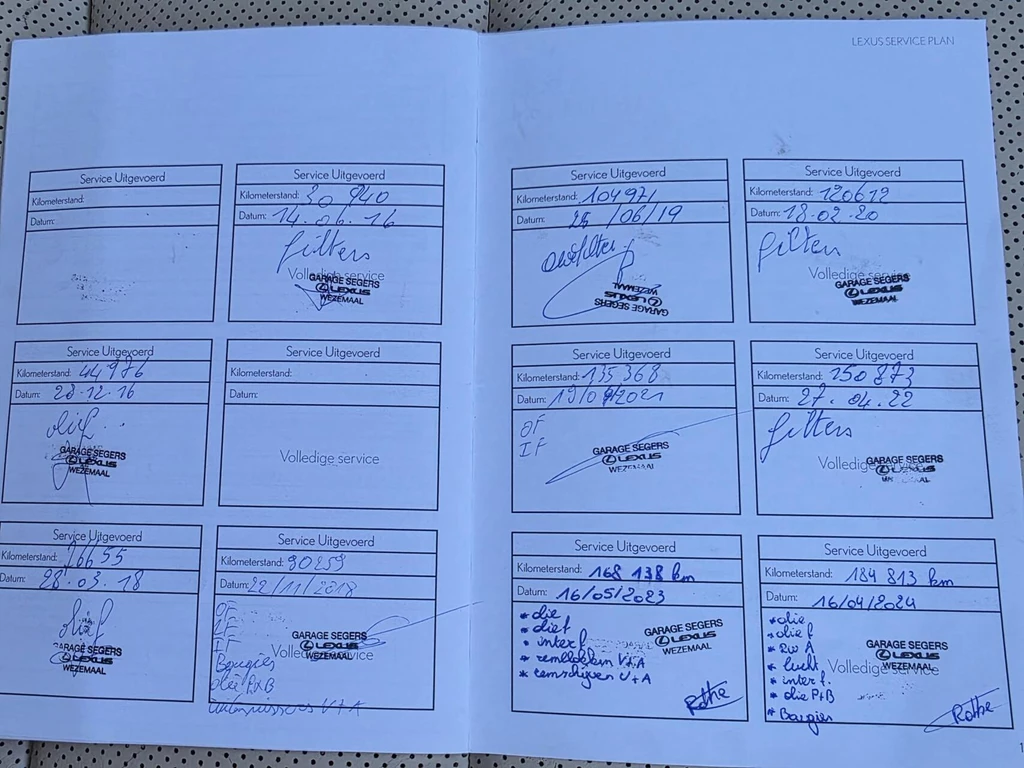 LEXUS SERVICE PLAN
Service Uitgevoerd
Kilometerstand:
Datum:
Service Uitgevoerd
Kilometerstand: 30 940
Datum: 14.06.16
filters
Volledige service
GARAGE SEGERS
LEXUS
WEZEMAAL
Service Uitgevoerd
Kilometerstand: 44976
Datum: 28.12.16
olief
GARAGE SEGERS
LEXUS
WEZEMAAL
Service Uitgevoerd
Kilometerstand:
Datum:
Volledige service
Service Uitgevoerd
Kilometerstand: 76655
Datum: 28.03.18
olief
GARAGE SEGERS
LEXUS
WEZEMAAL
Service Uitgevoerd
Kilometerstand: 90259
Datum: 22/11/2018
OF
IF
Bougies
olie P+B
V+A
Volledige service
GARAGE SEGERS
LEXUS
WEZEMAAL
Service Uitgevoerd
Kilometerstand: 104971
Datum: 25/06/19
oliefilter
GARAGE SEGERS
LEXUS
WEZEMAAL
Service Uitgevoerd
Kilometerstand: 120612
Datum: 18.02.20
filters
Volledige service
GARAGE SEGERS
LEXUS
WEZEMAAL
Service Uitgevoerd
Kilometerstand: 135 368
Datum: 19/0 /2021
OF
IF
GARAGE SEGERS
LEXUS
WEZEMAAL
Service Uitgevoerd
Kilometerstand: 150 873
Datum: 27.04.22
filters
Volledige
GARAGE SEGERS
LEXUS
WEZEMAAL
Service Uitgevoerd
Kilometerstand: 168 138 km
Datum: 16/05/2023
* olie
* olief
* interf
* remblokken V+A
* remschijven V+A
GARAGE SEGERS
LEXUS
WEZEMAAL
Rothe
Service Uitgevoerd
Kilometerstand: 184 813 km
Datum: 16/04/2024
* olie
* olie f
* RW A
* lucht
* interf.
* olie P+B
* Bougies
Volledige service
GARAGE SEGERS
LEXUS
WEZEMAAL
Rothe